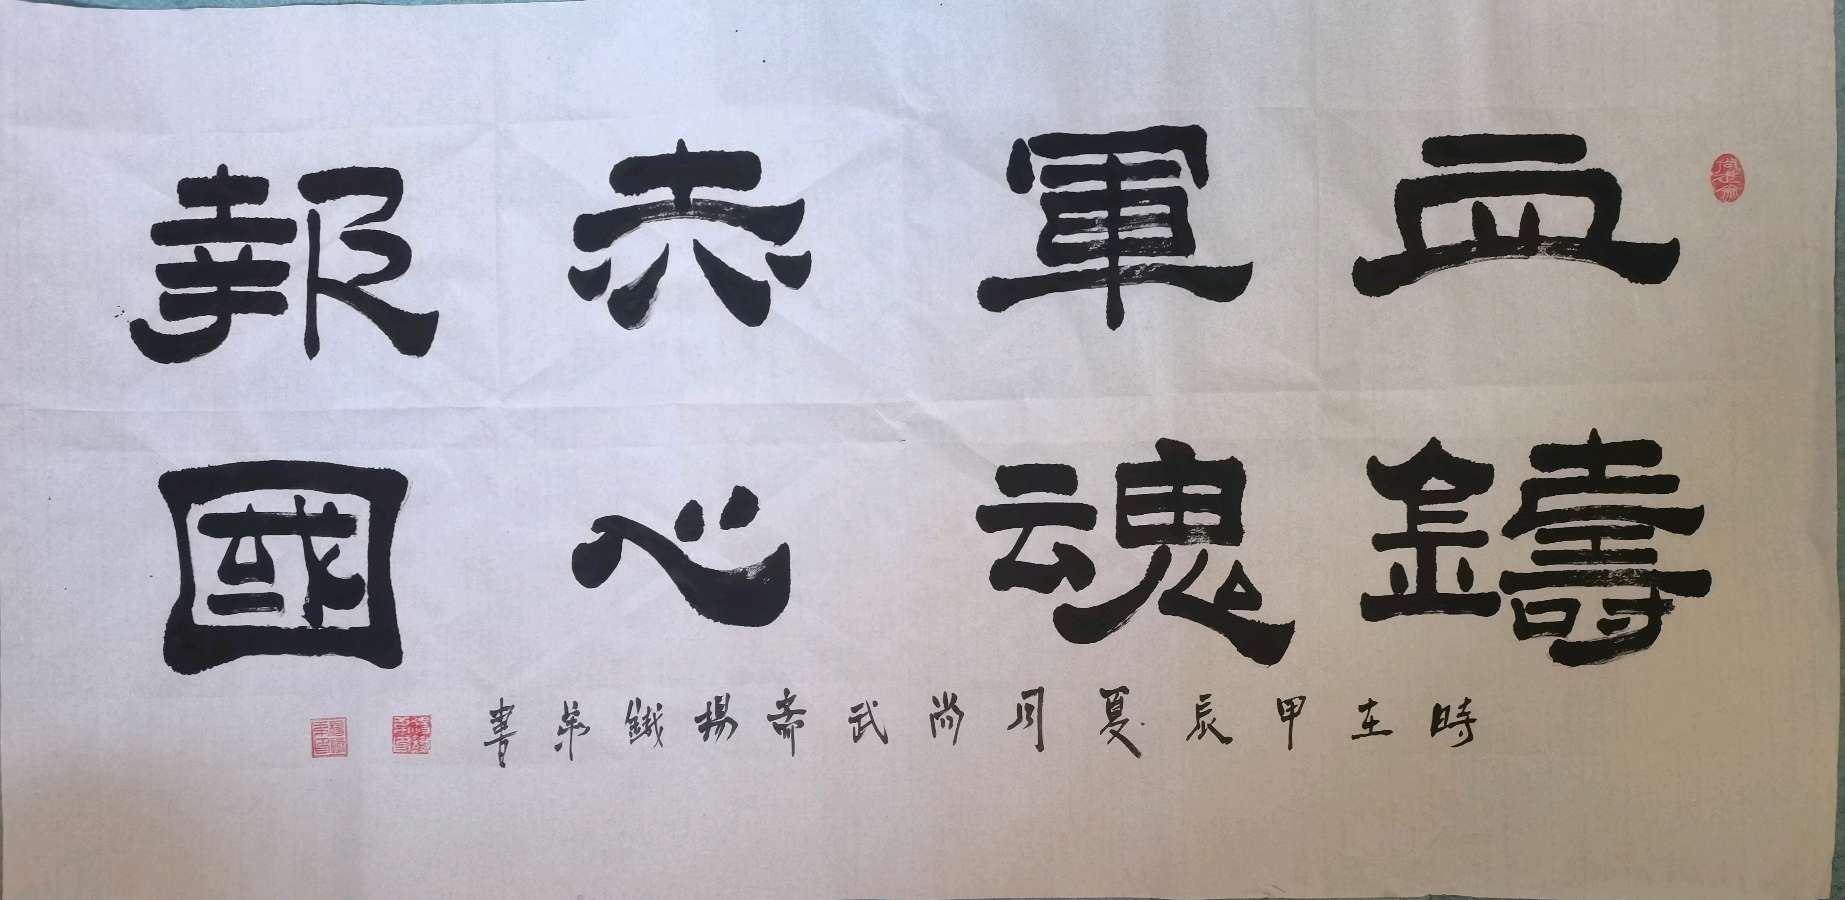 血鑄
軍魂
赤心
報國
時在甲辰夏月尚武齋楊鐵書
尚武齋